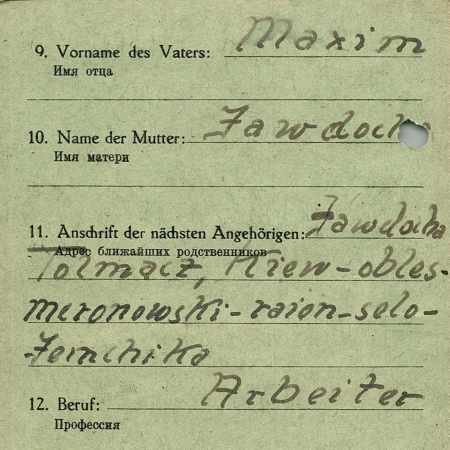 9. Vorname des Vaters: Maxim
Имя отца
10. Name der Mutter: Jawdocha
Имя матери
11. Anschrift der nächsten Angehörigen: Jawdocha
Адрес ближайших родственников
Tolmacz, Kiew-obles-
meronowski-raion-selo-
Jemchika
12. Beruf: Arbeiter
Профессия